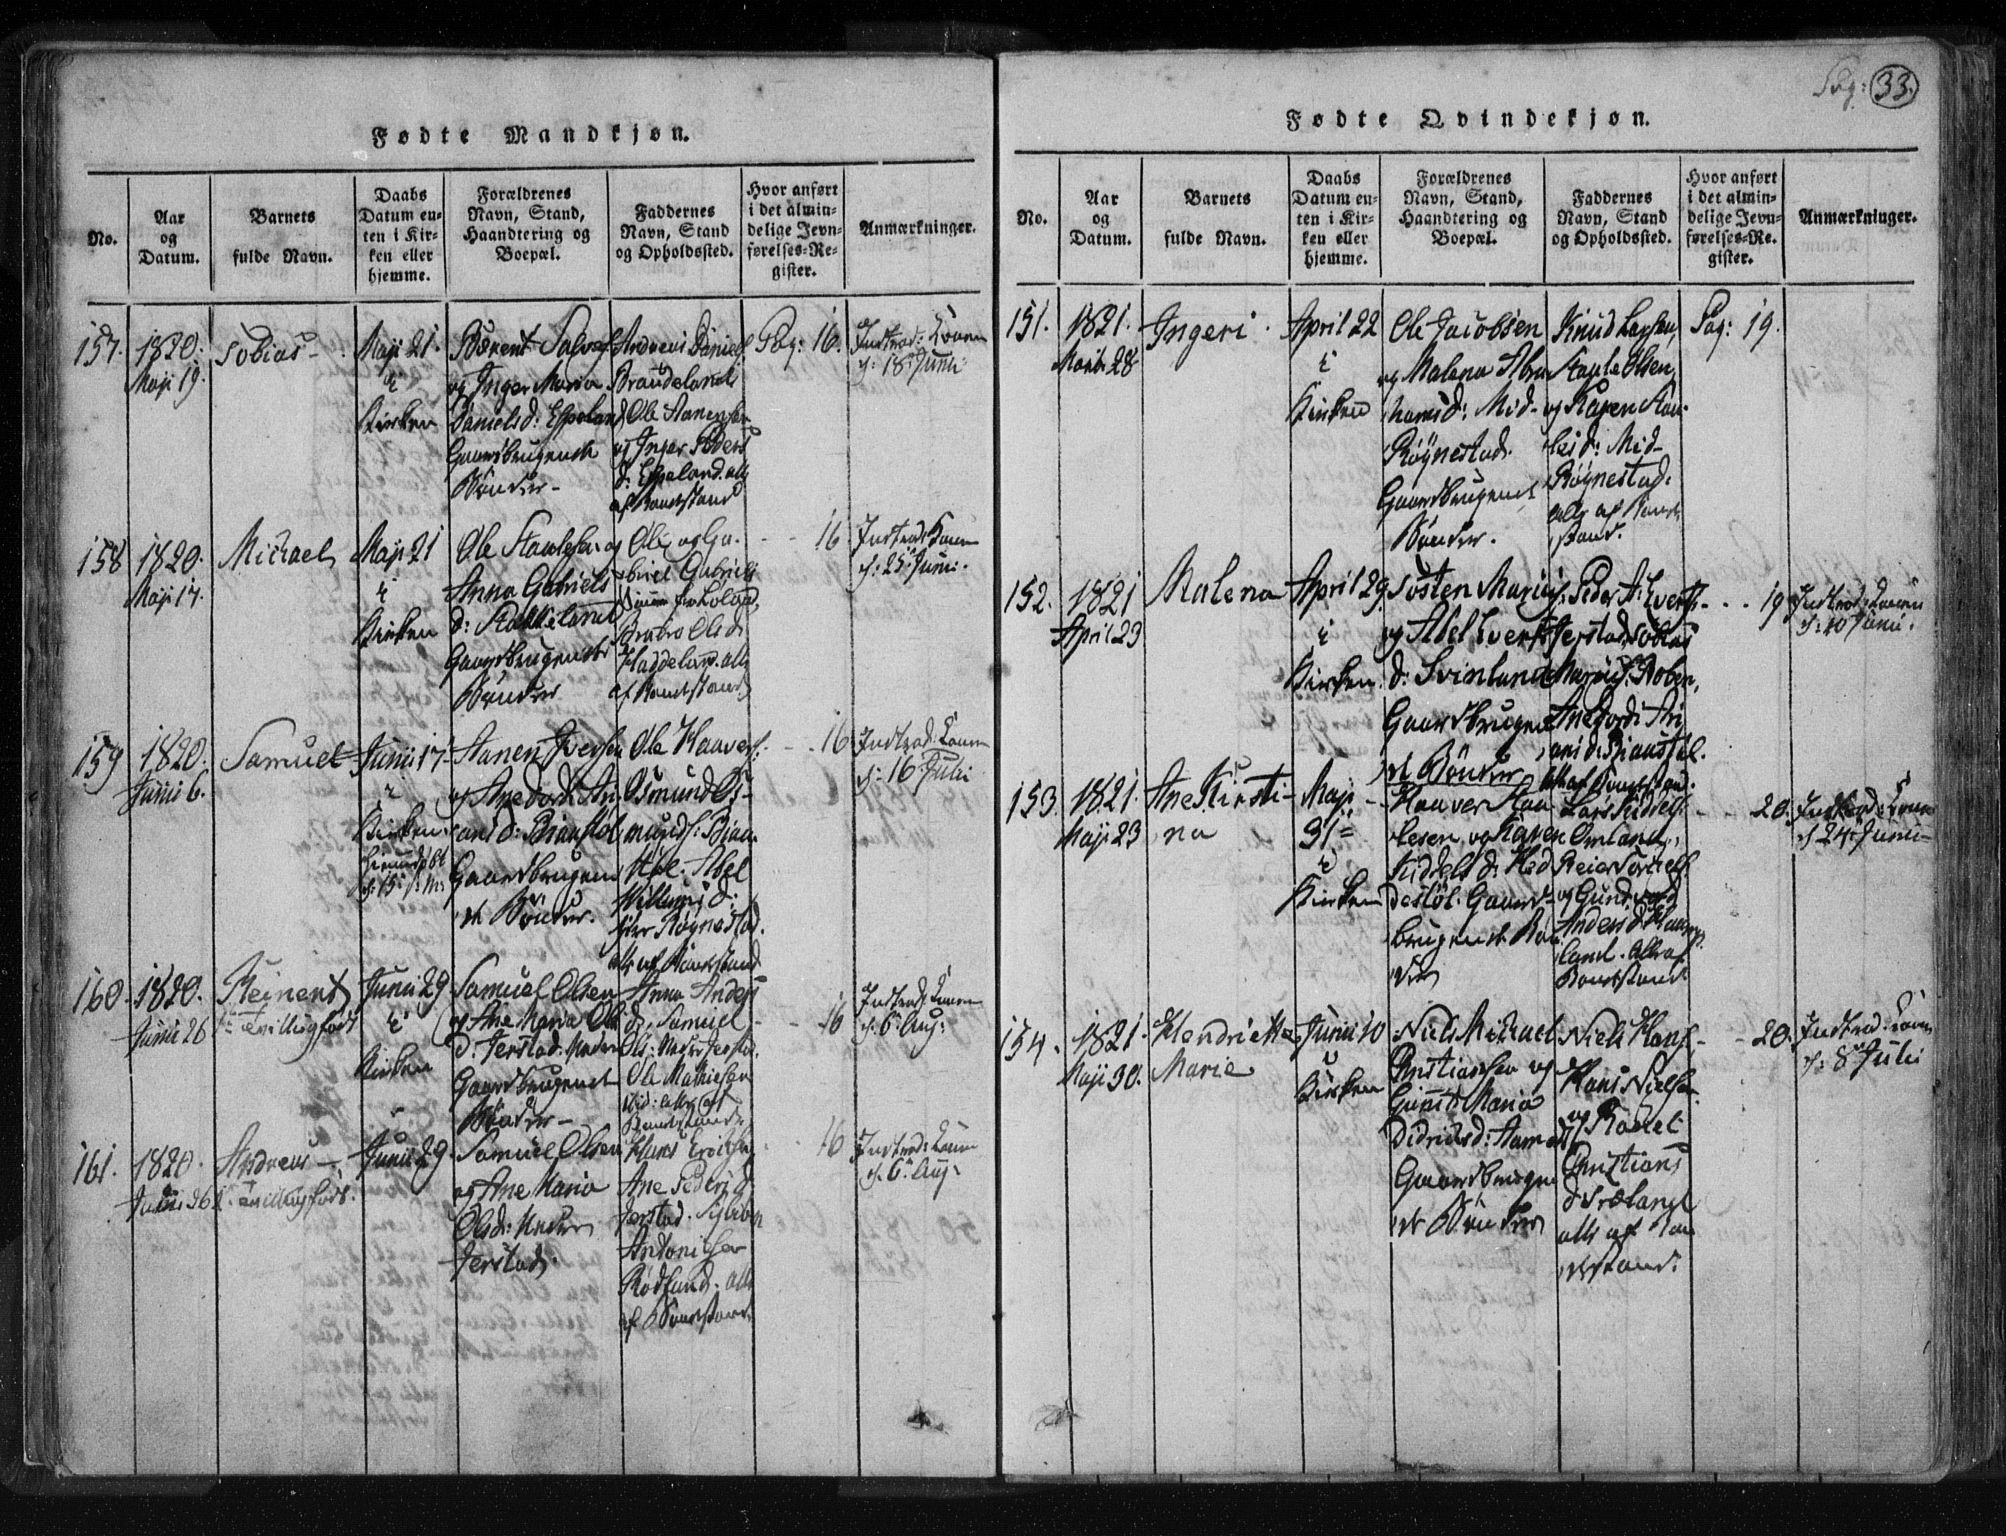 Pag: 33.
Fødte Mandkjøn.
No.
Aar
og
Datum.
Barnets
fulde Navn.
Daabs
Datum en-
ten i Kir-
ken eller
hjemme.
Forældrenes
Navn, Stand,
Haandtering og
Boepæl.
Faddernes
Navn, Stand
og Opholdssted.
Hvor anført
i det almin-
delige Jevn-
førelses-Re-
gister.
Anmærkninger.
157.
1820.
Maji 19.
Tobias
Maji 21.
i
Kirken
Børent
og Inger Maria
Danielsd: Espeland
Gaardbrugende
Bønder
Andreas Daniels
Ole Aanensen
og Inger Peders
d: Espeland. alle
af Bondestand
Pag: 16.
Introd: Konen
d: 18 Junii
158
1820.
Maji 17.
Michael
Maji 21
i
Kirken
Ole og
Anna Gabriels
d:
Gaardbrugende
Bønder
Ole og Ga-
briel Gabriels
Olsd:
Haddeland. alle
af Bondestand
16
Introd: Konen
d: 25 Junii.
159
1820.
Junii 6.
Samuel
Junii 17
i
Kirken
Aanen Iversen
og Anedorthe Ari
ans d: Bjaustøl
Gaardbrugen
de Bønder.
Ole Haavers:
Osmund Os-
munds: Bjau
støl. Abel
Villumsd:
Røynestad.
alle af Bondestand
16
Introd: Konen
d: 16 Julii
160.
1820.
Junii 26
Reinert
1ste Tvillingfødt
Junii 29
i
Kirken
Samuel Olsen
og Ane Maria Ols
d: Jerstad. Nedre
Gaardbrugende
Bønder
Anna Anders
d: Samuel
Ols: Nedre Jerstad.
Ole Mathiesen
ibid: alle af
Bondestand
16
Introd: Konen
d: 6 Aug:
161.
1820.
Junii 26
Andreas
2de Tvillingfødt.
Junii 29.
Samuel Olsen
og Ane Maria
Olsd: Nedre
Jerstad.
Hans
Ane Peders d:
Jerstad.
Antonisen
Rødland. alle
af Bondestand.
16
Introd: Konen
d: 6 Aug:
Fødte Qvindekjøn.
No.
Aar
og
Datum.
Barnets
fulde Navn.
Daabs
Datum en-
ten i Kir-
ken eller
hjemme.
Forældrenes
Navn, Stand,
Haandtering og
Boepæl.
Faddernes
Navn, Stand
og Opholdssted.
Hvor anført
i det almin-
delige Jevn-
førelses-Re-
gister.
Anmærkninger.
151.
1821.
Martii 28
Ingeri.
April 22
i
Kirken
Ole Jacobsen
og Malena Abra
hamsd: Mid-
Røynestad.
Gaardbrugende
Bønder.
Knud Larsen,
Staale Olsen,
og Karen Staa-
lesd: Mid-
Røynestad.
alle af Bonde
stand.
Pag: 19.
152.
1821
April 23
Malena
April 29.
i
Kirken.
Tosten
og Abel Iverts
d: Svinland
Gaardbrugen
de Bønder
Peder
Jerstad, Tobias
Anedorthe Ari
ansd: Bjaustøl.
alle af Bondestand.
19
Introd: Konen
d: 10 Junii.
153.
1821.
Maji 23
Ane Kirsti-
na
Maji
31
i
Kirken
Haaver Staa
lesen og Karen
Kiddelsd: Hed
destøl. Gaard-
brugende Bøn
der
Lars Kiddels:
Omland,
Reier
og Gunvord
Anders d:
land. Alle af
Bondestand
20.
Introd: Konen
d 24 Junii
154.
1821.
Maji 30.
Hendriette
Marie
Junii 10
i
Kirken
Niels Michael
Christiansen og
Maria
Didrichsd:
Gaardbrugen
de Bønder
Niels Hans:
Hans Nielsen
og Rachel
Christians
d: Træland
alle af Bon
destand.
20.
Introd: Konen
d: 8 Julii